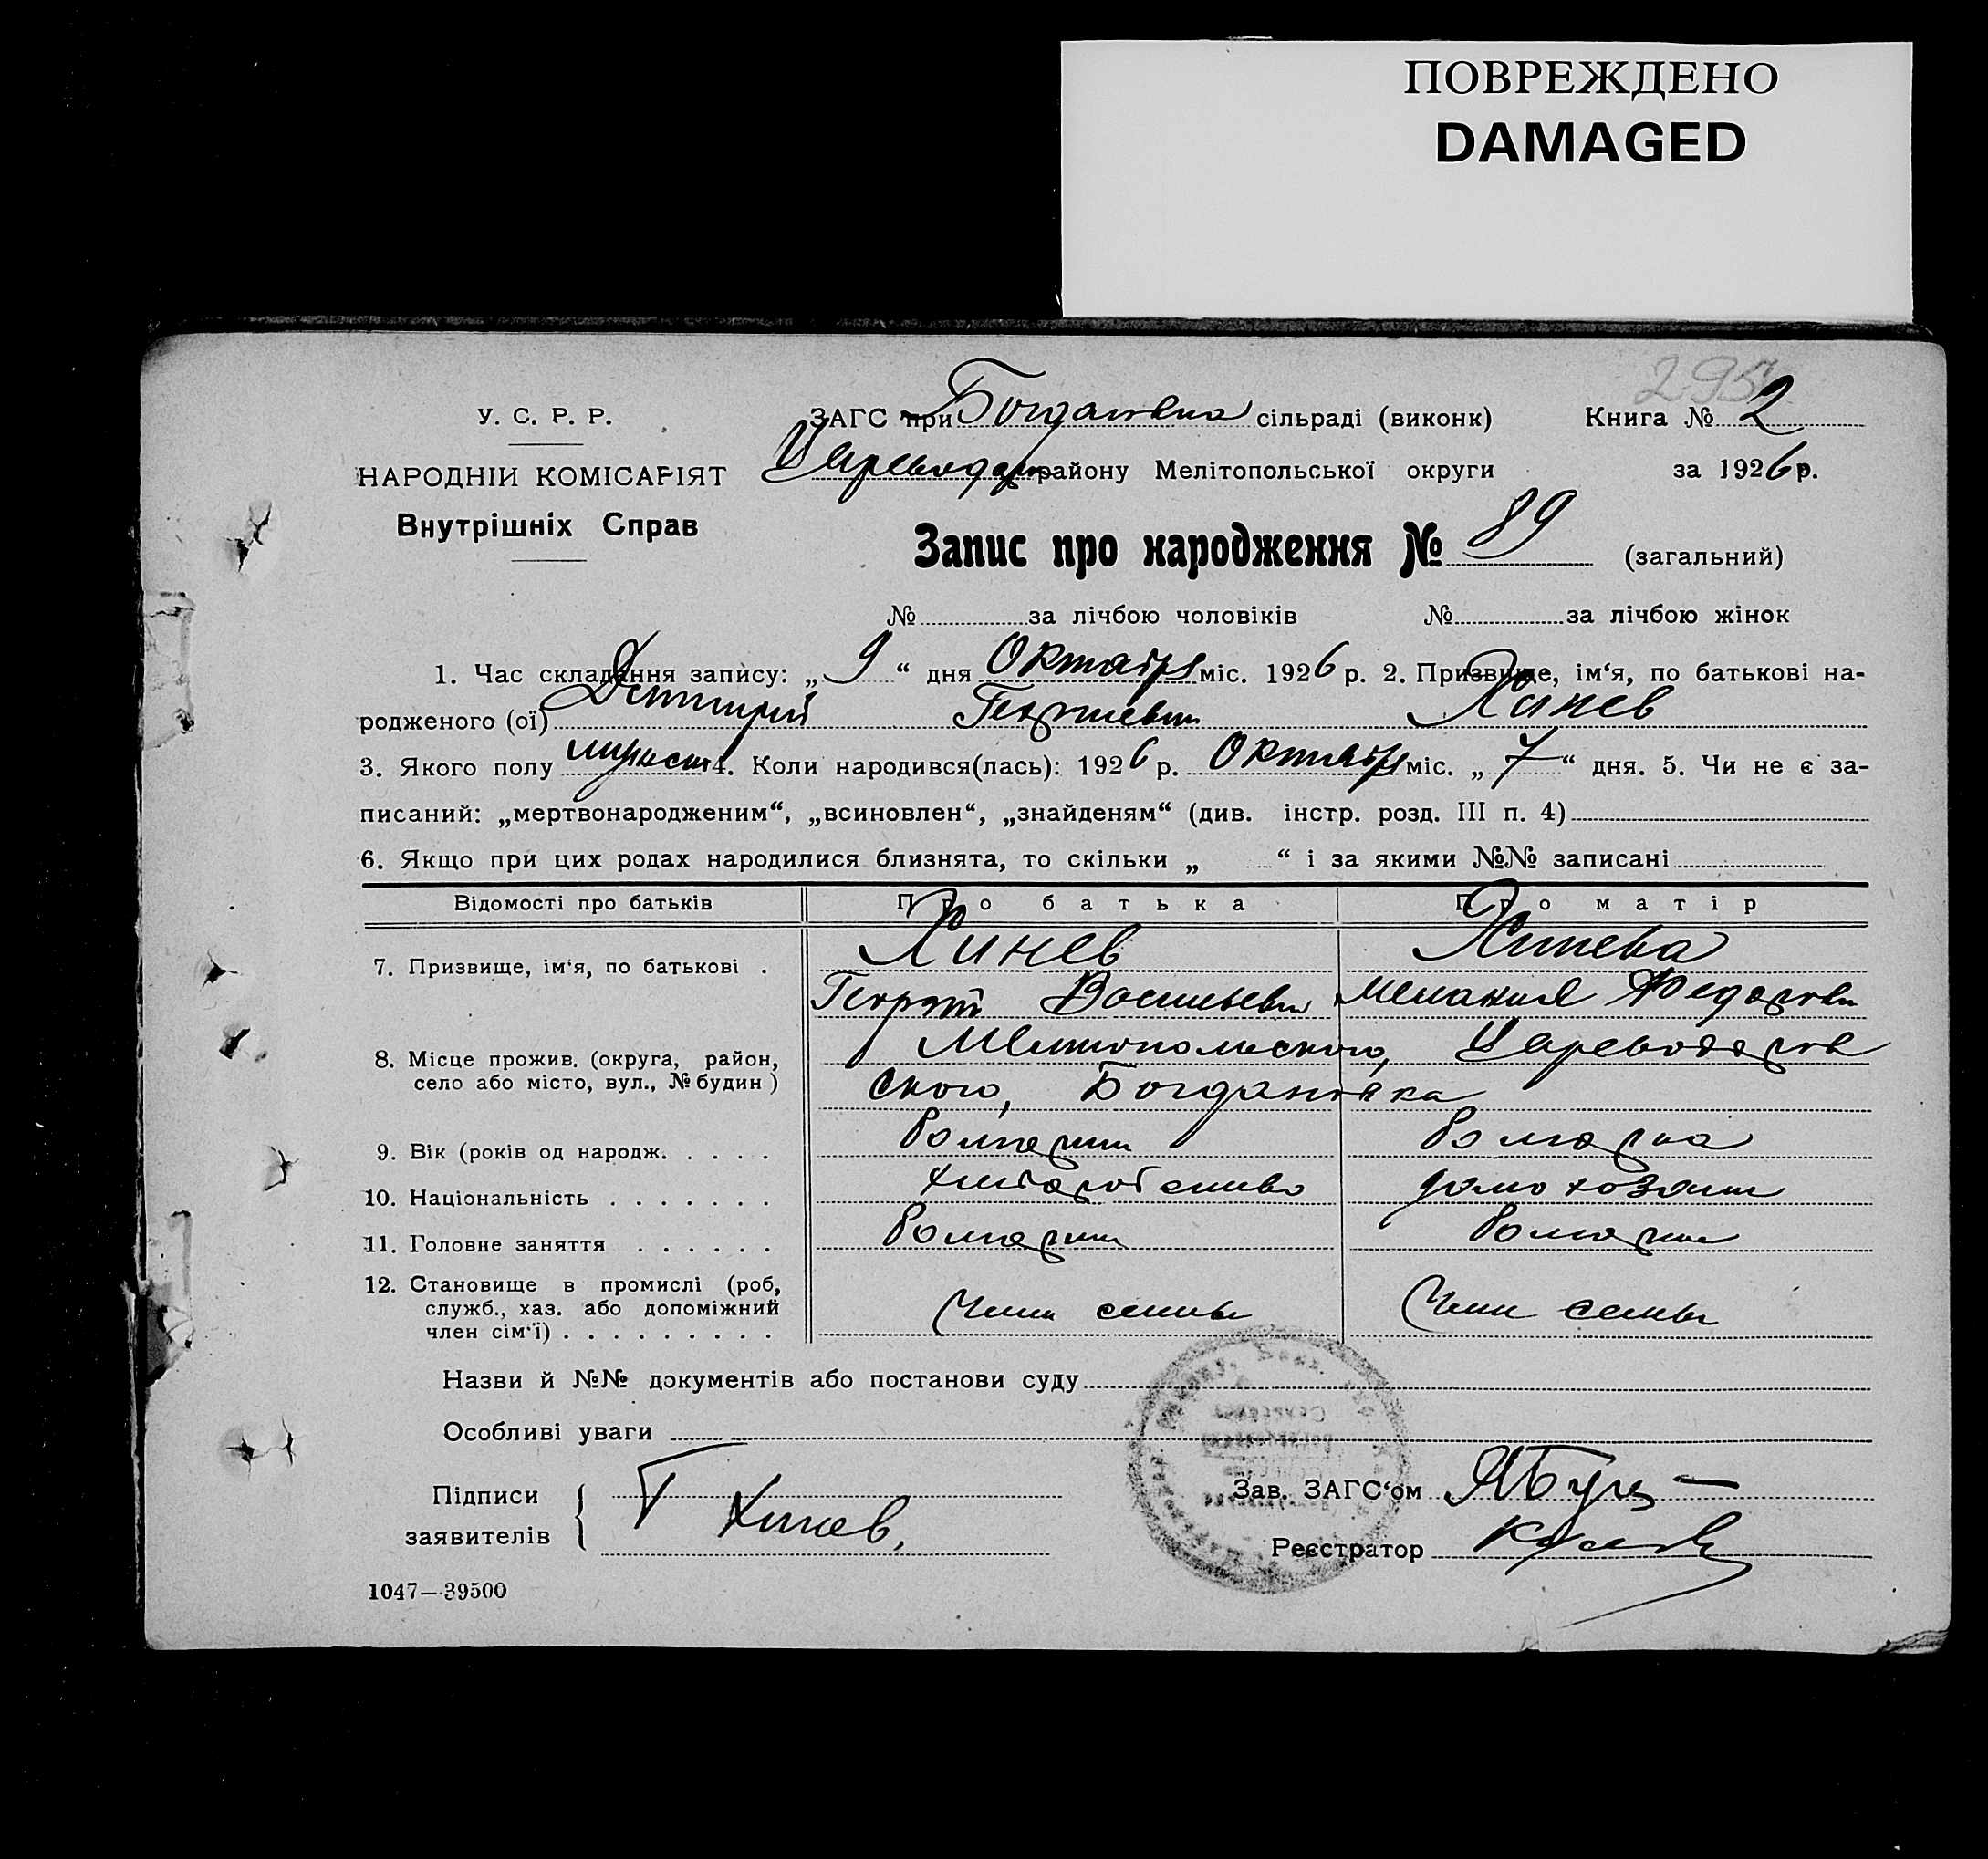 ПОВРЕЖДЕНО
DAMAGED
295
У. С. Р. Р.
ЗАГС при Богдановка сільраді (виконк) Книга № 2
НАРОДНІЙ КОМІСАРІЯТ
Цареводар району Мелітопольської округи за 1926 р.
Внутрішніх Справ
Запис про народження № 89 (загальний)
№ за лічбою чоловіків № за лічбою жінок
1. Час складання запису: „ 9 “ дня Октября міс. 1926 р. 2. Призвище, ім‘я, по батькові на-
родженого (ої) Дмитрий Георгиевич Хинев
3. Якого полу мужск 4. Коли народився(лась): 1926 р. Октября міс. „ 7 “ дня. 5. Чи не є за-
писаний: „мертвонародженим“, „всиновлен“, „знайденям“ (див. інстр. розд. III п. 4)
6. Якщо при цих родах народилися близнята, то скільки „ “ і за якими №№ записані
Відомості про батьків Про батька Про матір
7. Призвище, ім‘я, по батькові . Хинев Хинева
Георгий Васильевич Мелания Федоровн
8. Місце прожив. (округа, район, село або місто, вул., № будин ) Мелитопольского, Цареводаров
ского, Богдановка
9. Вік (років од народж. . . . . Болгарин Болгарка
10. Національність . . . . . . . хлебопашество домохозяин
11. Головне заняття . . . . . . Болгарин Болгарин
12. Становище в промислі (роб,
служб., хаз. або допоміжний
член сім‘ї) . . . . . . . . . Член семьи Член семьи
Назви й №№ документів або постанови суду
Особливі уваги
Підписи
заявителів Г Хинев,
Зав. ЗАГС‘ом
Реєстратор
1047—39500